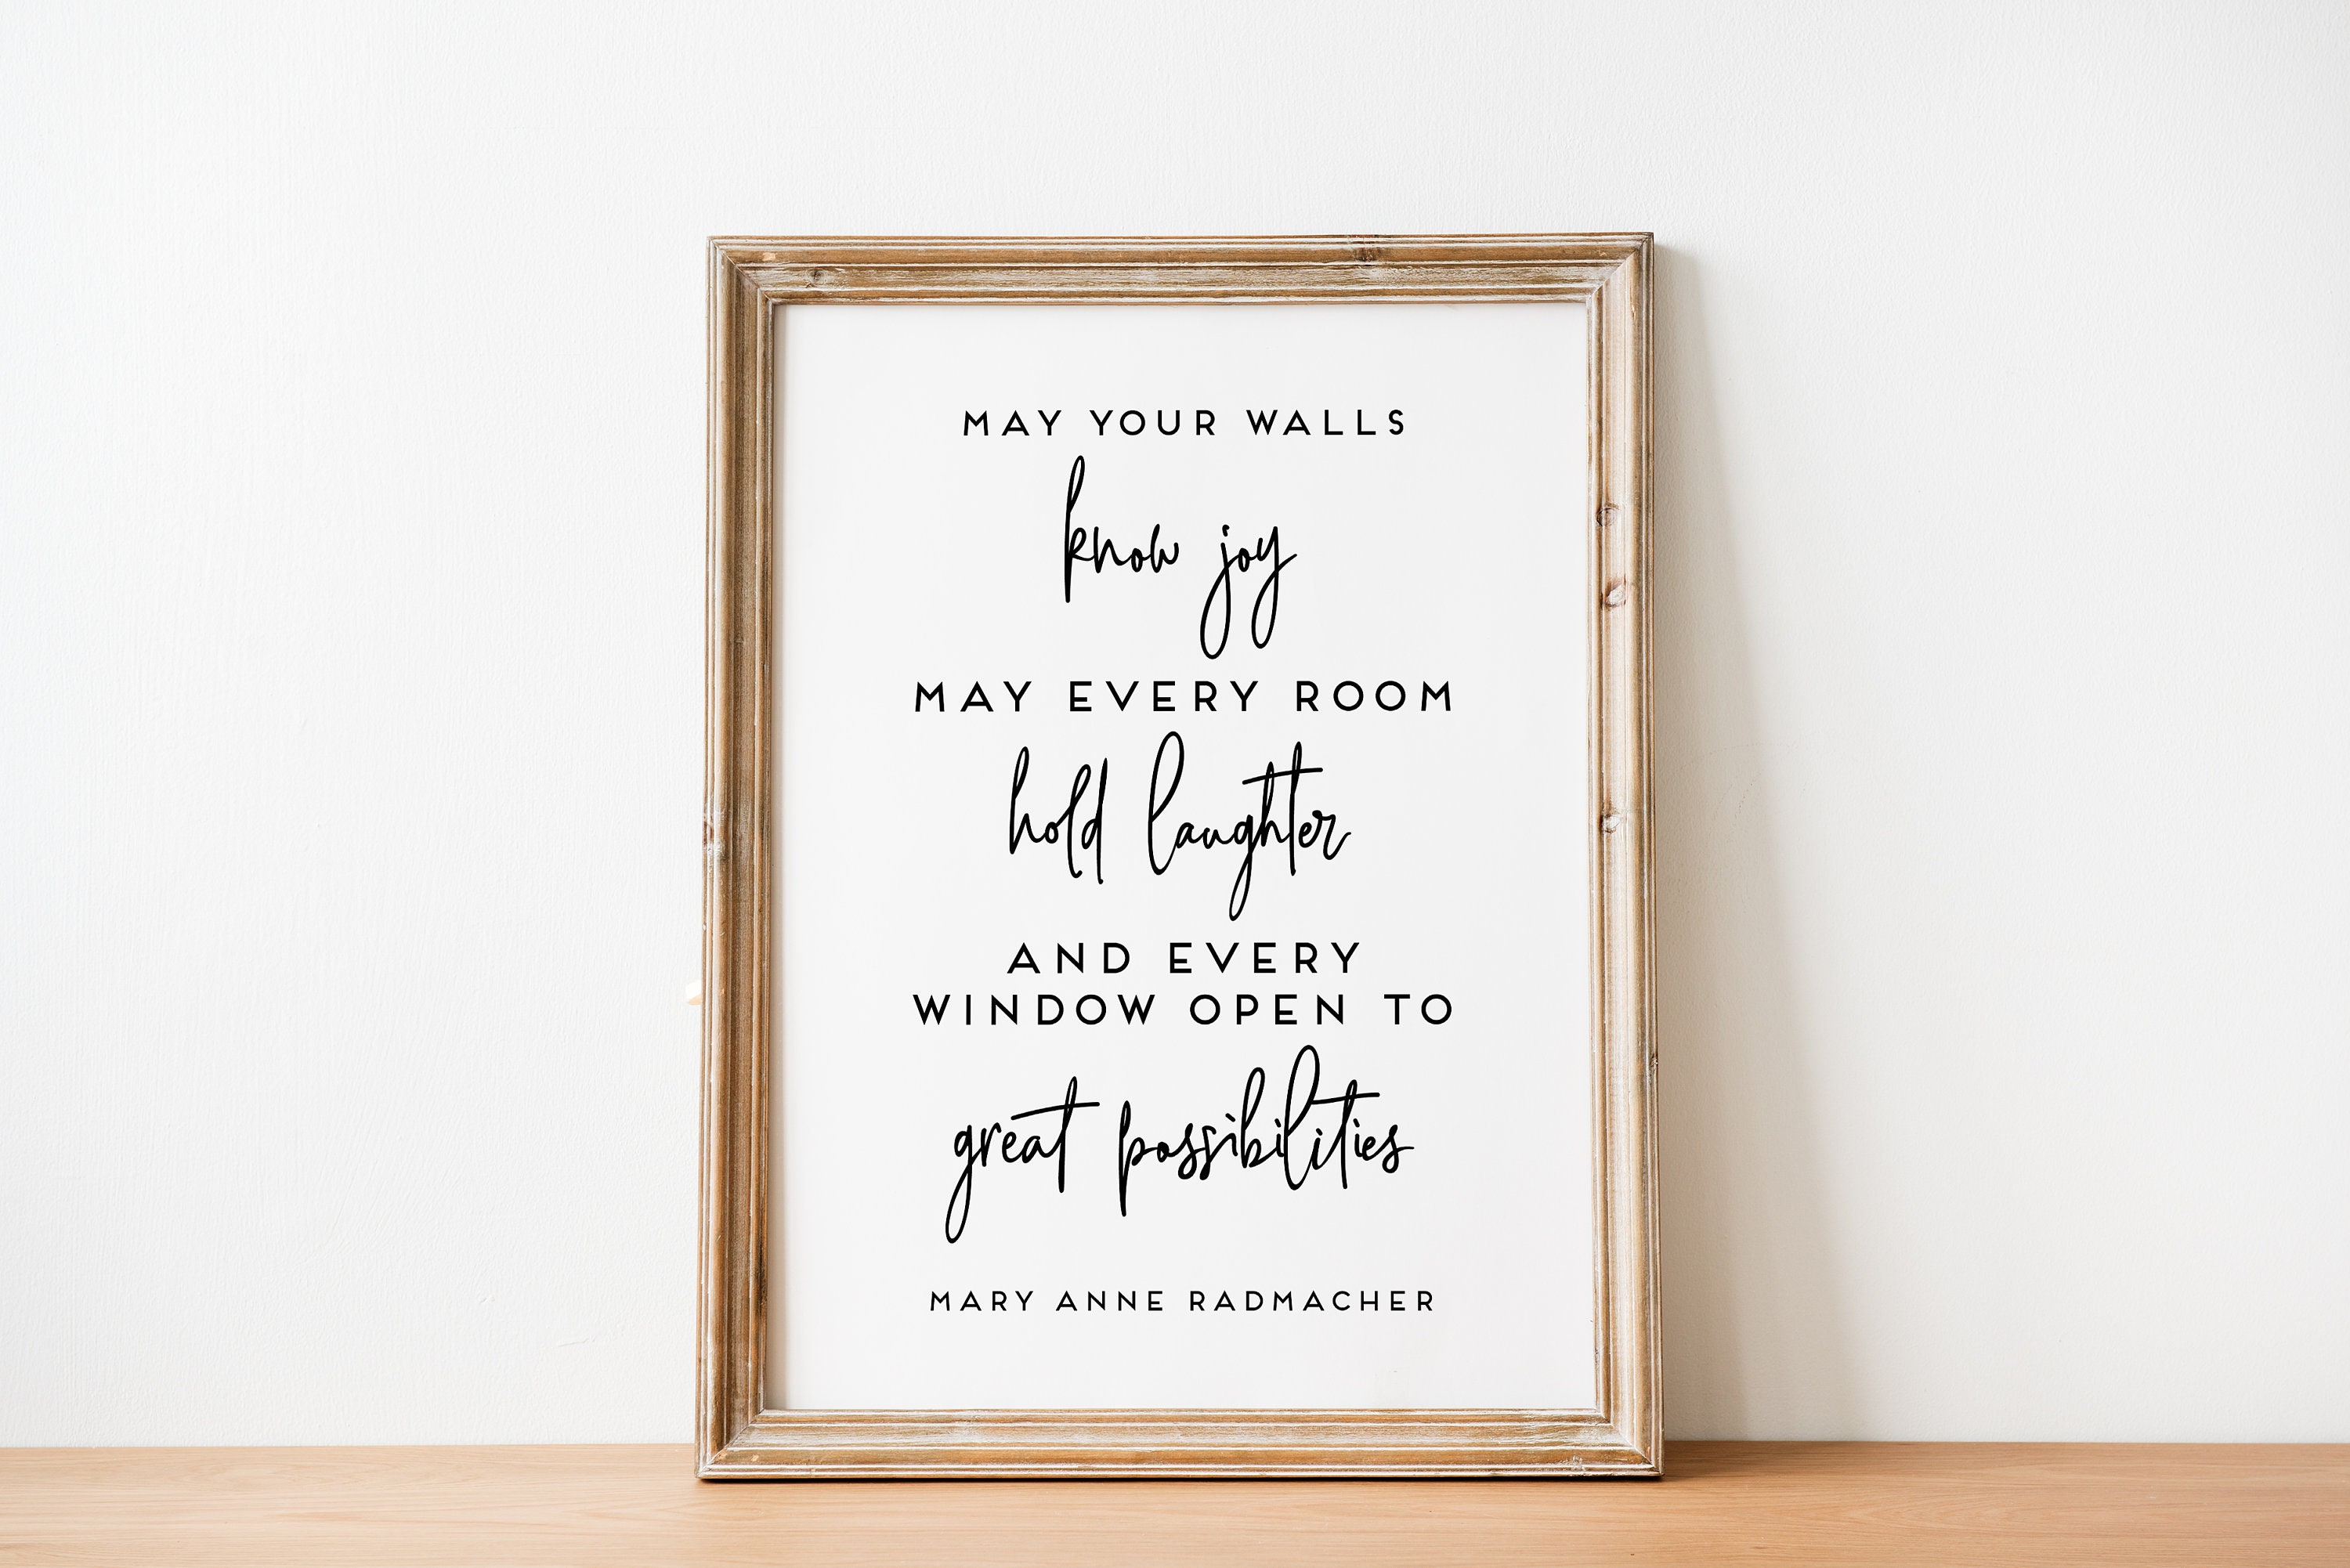 MAY YOUR WALLS
know joy
MAY EVERY ROOM
hold laughter
AND EVERY
WINDOW OPEN TO
great possibilities
MARY ANNE RADMACHER